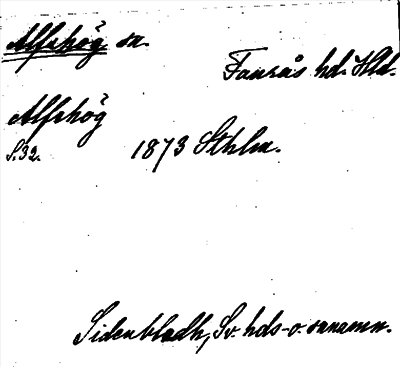 Alfshög sn.
Faurås hd. Hld.
Alfshög
S. 32. 1873 Sthlm.
Sidenbladh, Sv. hds- o. snnamn.